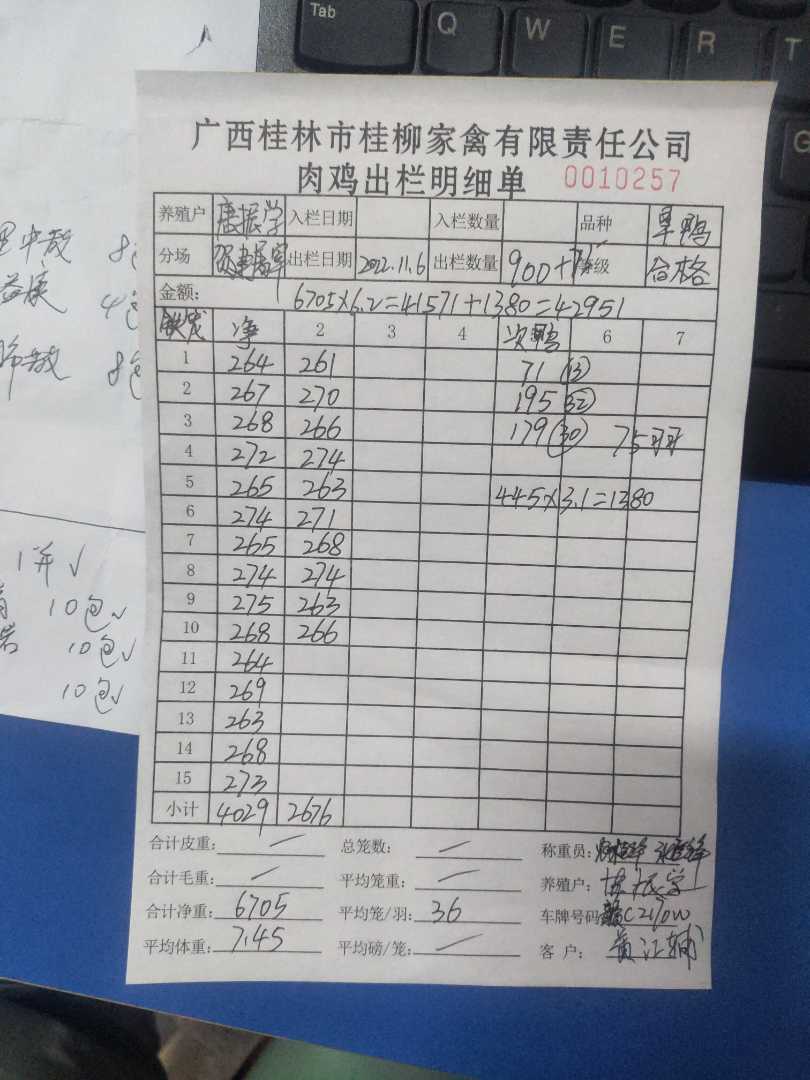 Tab Q W E R T
G
广西桂林市桂柳家禽有限责任公司
肉鸡出栏明细单 0010257
养殖户 唐振学 入栏日期 入栏数量 品种 旱鸭
分场 出栏日期 2022.11.6 出栏数量 900+75 等级 合格
金额: 6705×6.2=41571+1380=42951
净 2 3 4 次鸭 6 7
1 264 261 71 ⑬
2 267 270 195 ㉜
3 268 266 179 ㉚ 75
4 272 274
5 265 263 445×3.1=1380
6 274 271
7 265 268
8 274 274
9 275 263
10 268 266
11 264
12 269
13 263
14 268
15 273
小计 4029 2676
合计皮重: 总笼数: 称重员:
合计毛重: 平均笼重: 养殖户: 唐振学
合计净重: 6705 平均笼/羽: 36 车牌号码
平均体重: 7.45 平均磅/笼: 客 户: 黄江辅
8包
4包
8包
1并√
10包√
10包√
10包√